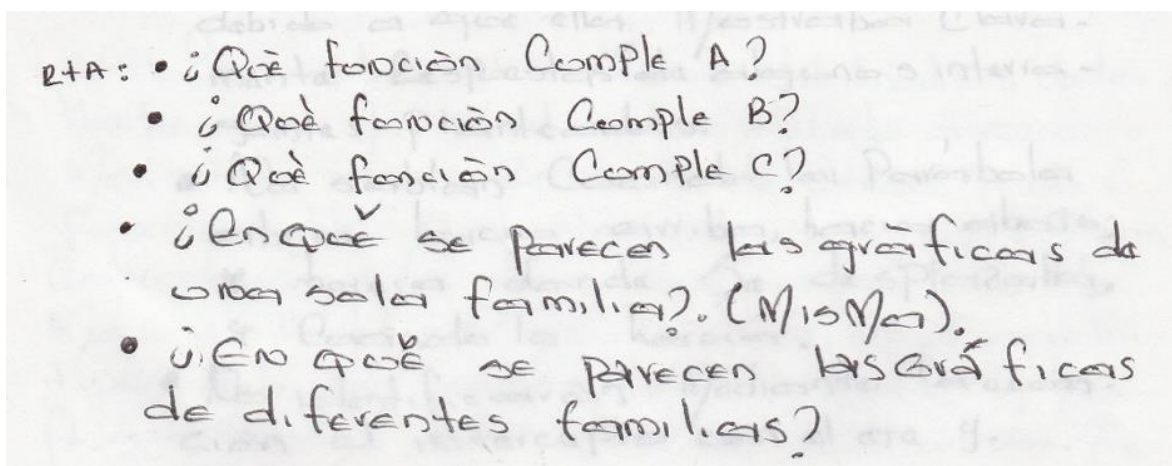 RtA: • ¿Què función Cumple A?
• ¿Què función Cumple B?
• ¿Què función Cumple C?
• ¿En què se parecen las graficas de
una sola familia?. (MisMa).
• ¿En què se parecen las Gráficas
de diferentes familias?